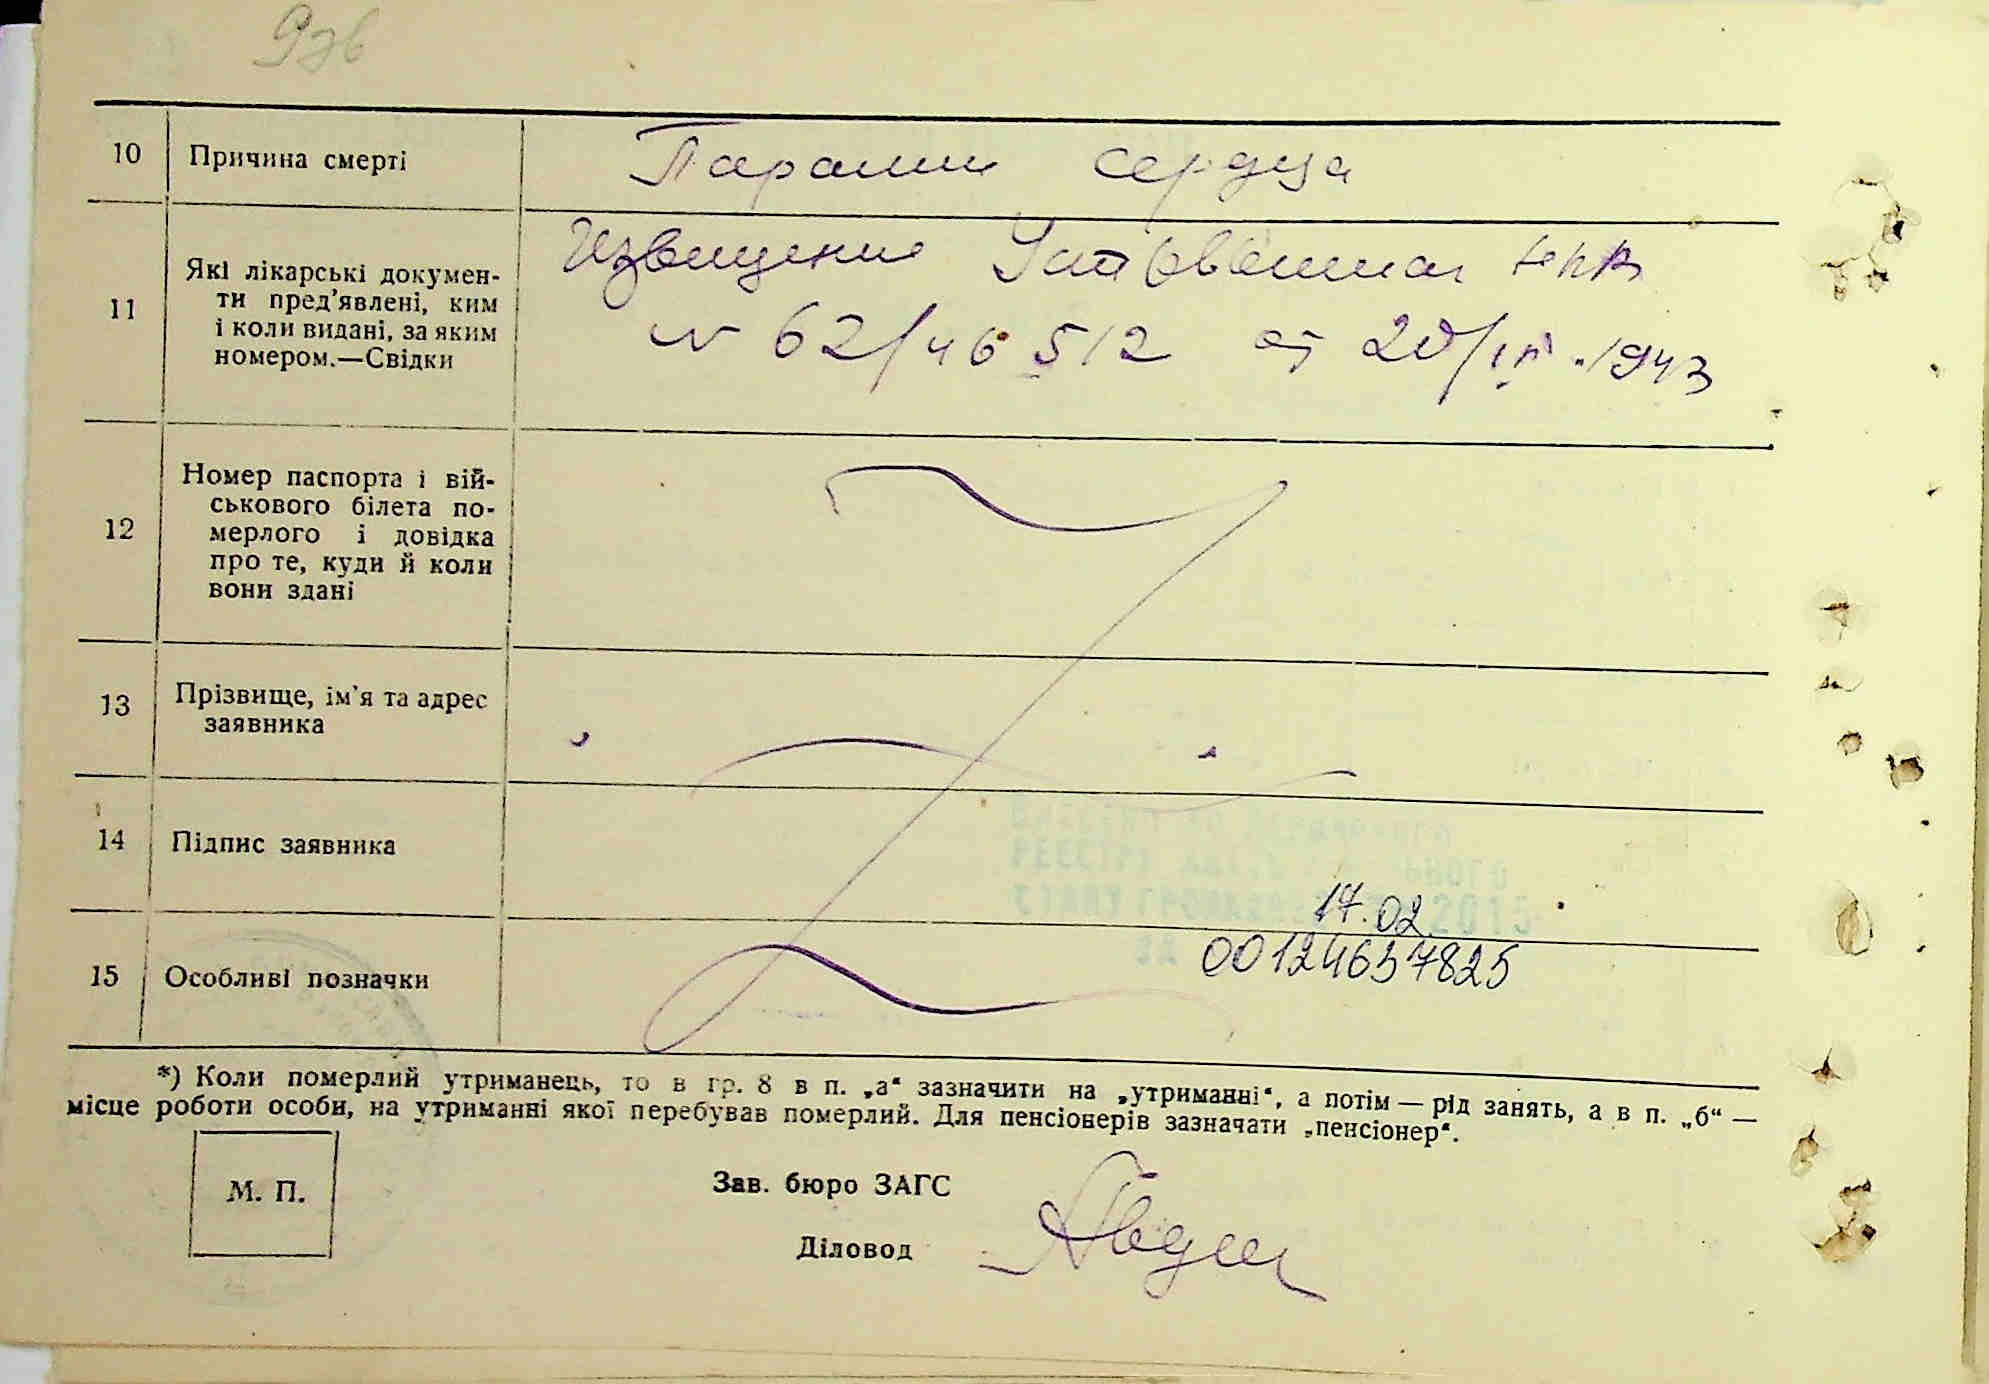 10 Причина смерті Паралич сердца
11 Які лікарські докумен-
ти пред'явлені, ким
і коли видані, за яким
номером.—Свідки
Извещение
N 62/46512 от 20/ 1943
12 Номер паспорта і вій-
ськового білета по-
мерлого і довідка
про те, куди й коли
вони здані
13 Прізвище, ім'я та адрес
заявника
14 Підпис заявника
РЕЄСТРУ
СТАНУ ГРОМАДЯН 17.02 2015
ЗА 00124657825
15 Особливі позначки
*) Коли померлий утриманець, то в гр. 8 в п. „а“ зазначити на „утриманні“, а потім — рід занять, а в п. „б“ —
місце роботи особи, на утриманні якої перебував померлий. Для пенсіонерів зазначати „пенсіонер“.
М. П.
Зав. бюро ЗАГС
Діловод